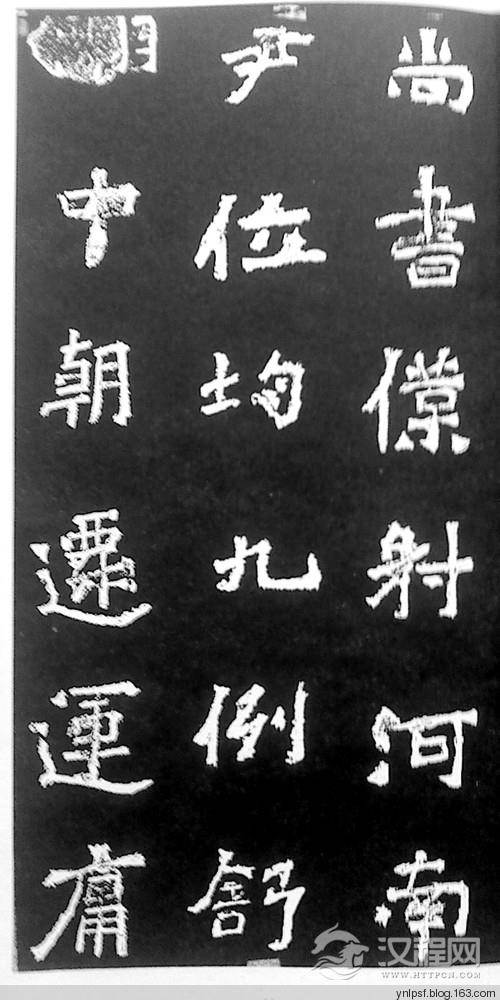 尚書僕射河南
尹位均九例舒
中朝遷運庸
汉程网
WWW.HTTPCN.COM
ynlpsf.blog.163.com